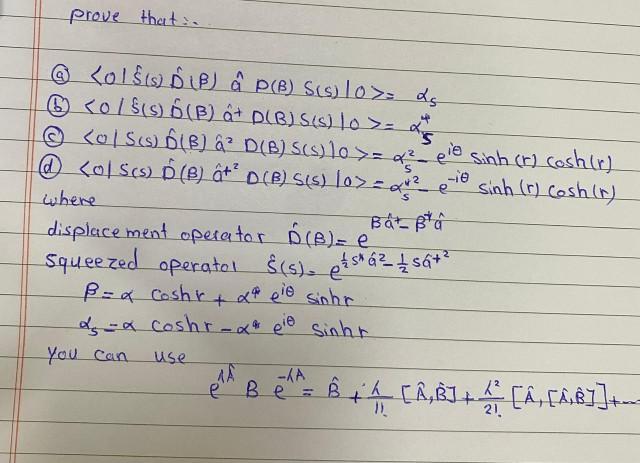 prove that:-
ⓐ <0| Ŝ(s) D̂(β) â D(β) S(s) |0> = αₛ
ⓑ <0| Ŝ(s) D̂(β) â† D(β) S(s) |0> = αₛ*
ⓒ <0| S(s) D̂(β) â² D(β) S(s) |0> = αₛ² - e^{iθ} sinh(r) cosh(r)
ⓓ <0| S(s) D̂(β) â†² D(β) S(s) |0> = αₛ*² - e^{-iθ} sinh(r) cosh(r)
where
displacement operator D̂(β) = e^{βâ† - β*â}
Squeezed operator Ŝ(s) = e^{½ s* â² - ½ s â†²}
β = α coshr + α* e^{iθ} sinhr
αₛ = α coshr - α* e^{iθ} sinhr
you can use
e^{λÂ} B e^{-λA} = B̂ + λ/1! [Â, B̂] + λ²/2! [Â, [Â, B̂]] + ...